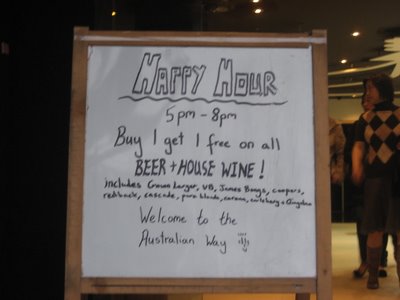 HAPPY HOUR
5pm - 8pm
Buy 1 get 1 free on all
BEER + HOUSE WINE !
includes Crown Larger, VB, James Boags, coopers,
redback, cascade, pure blonde, corona, carlsberg +
Welcome to the
Australian Way